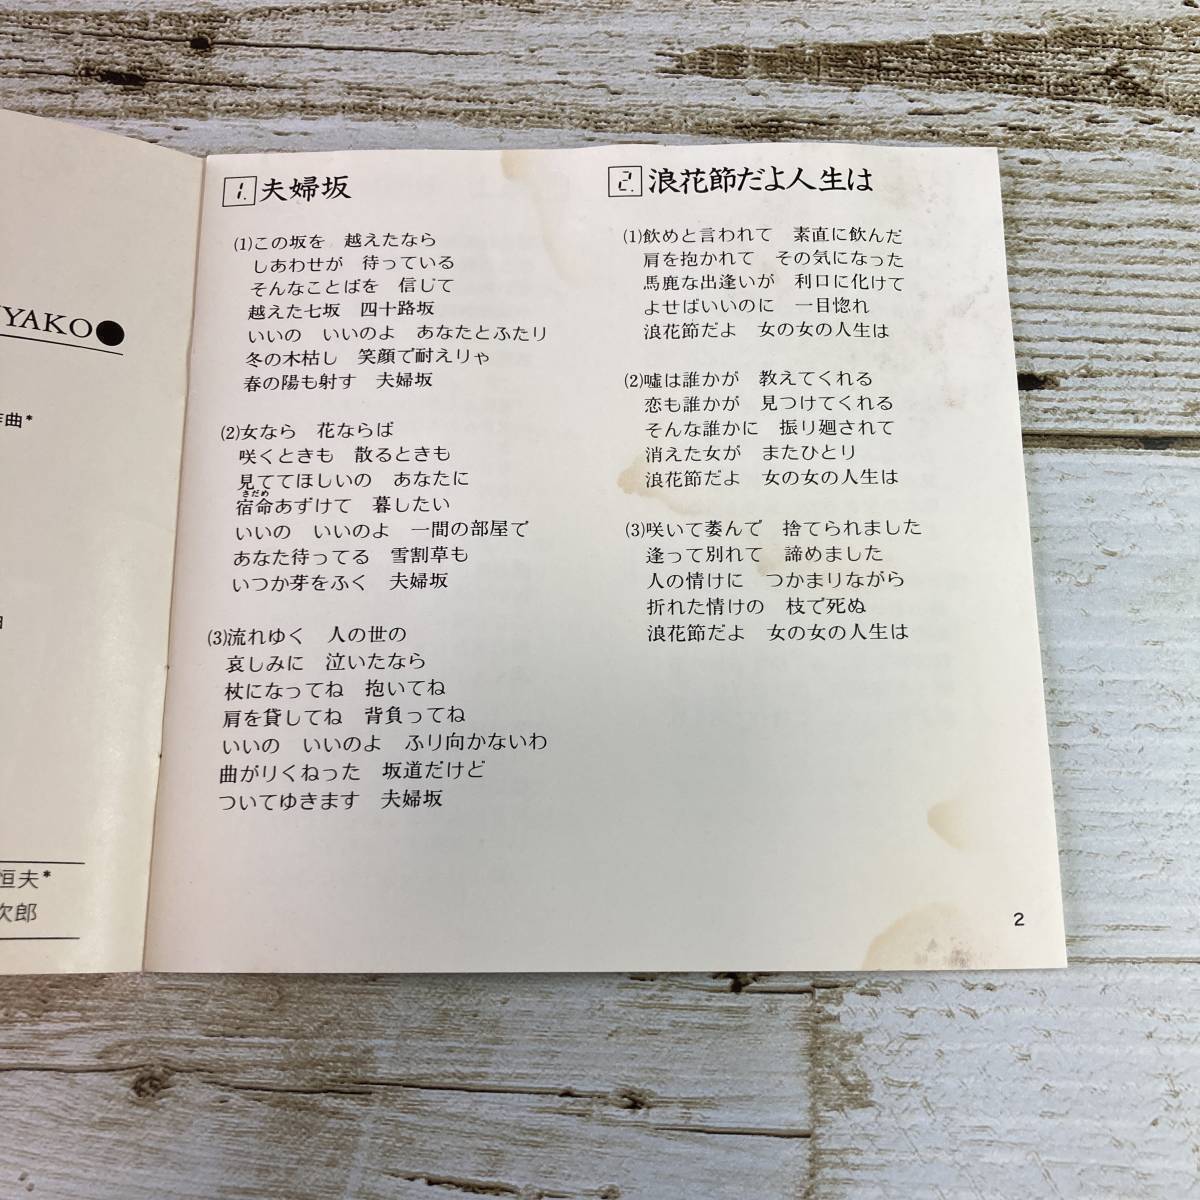 YAKO●
作曲*
曲
恒夫*
次郎
1. 夫婦坂
(1)この坂を 越えたなら
しあわせが 待っている
そんなことばを 信じて
越えた七坂 四十路坂
いいの いいのよ あなたとふたり
冬の木枯し 笑顔で耐えりゃ
春の陽も射す 夫婦坂
(2)女なら 花ならば
咲くときも 散るときも
見ててほしいの あなたに
さだめ
宿命あずけて 暮したい
いいの いいのよ 一間の部屋で
あなた待ってる 雪割草も
いつか芽をふく 夫婦坂
(3)流れゆく 人の世の
哀しみに 泣いたなら
杖になってね 抱いてね
肩を貸してね 背負ってね
いいの いいのよ ふり向かないわ
曲がりくねった 坂道だけど
ついてゆきます 夫婦坂
2. 浪花節だよ人生は
(1)飲めと言われて 素直に飲んだ
肩を抱かれて その気になった
馬鹿な出逢いが 利口に化けて
よせばいいのに 一目惚れ
浪花節だよ 女の女の人生は
(2)嘘は誰かが 教えてくれる
恋も誰かが 見つけてくれる
そんな誰かに 振り廻されて
消えた女が またひとり
浪花節だよ 女の女の人生は
(3)咲いて萎んで 捨てられました
逢って別れて 諦めました
人の情けに つかまりながら
折れた情けの 枝で死ぬ
浪花節だよ 女の女の人生は
2